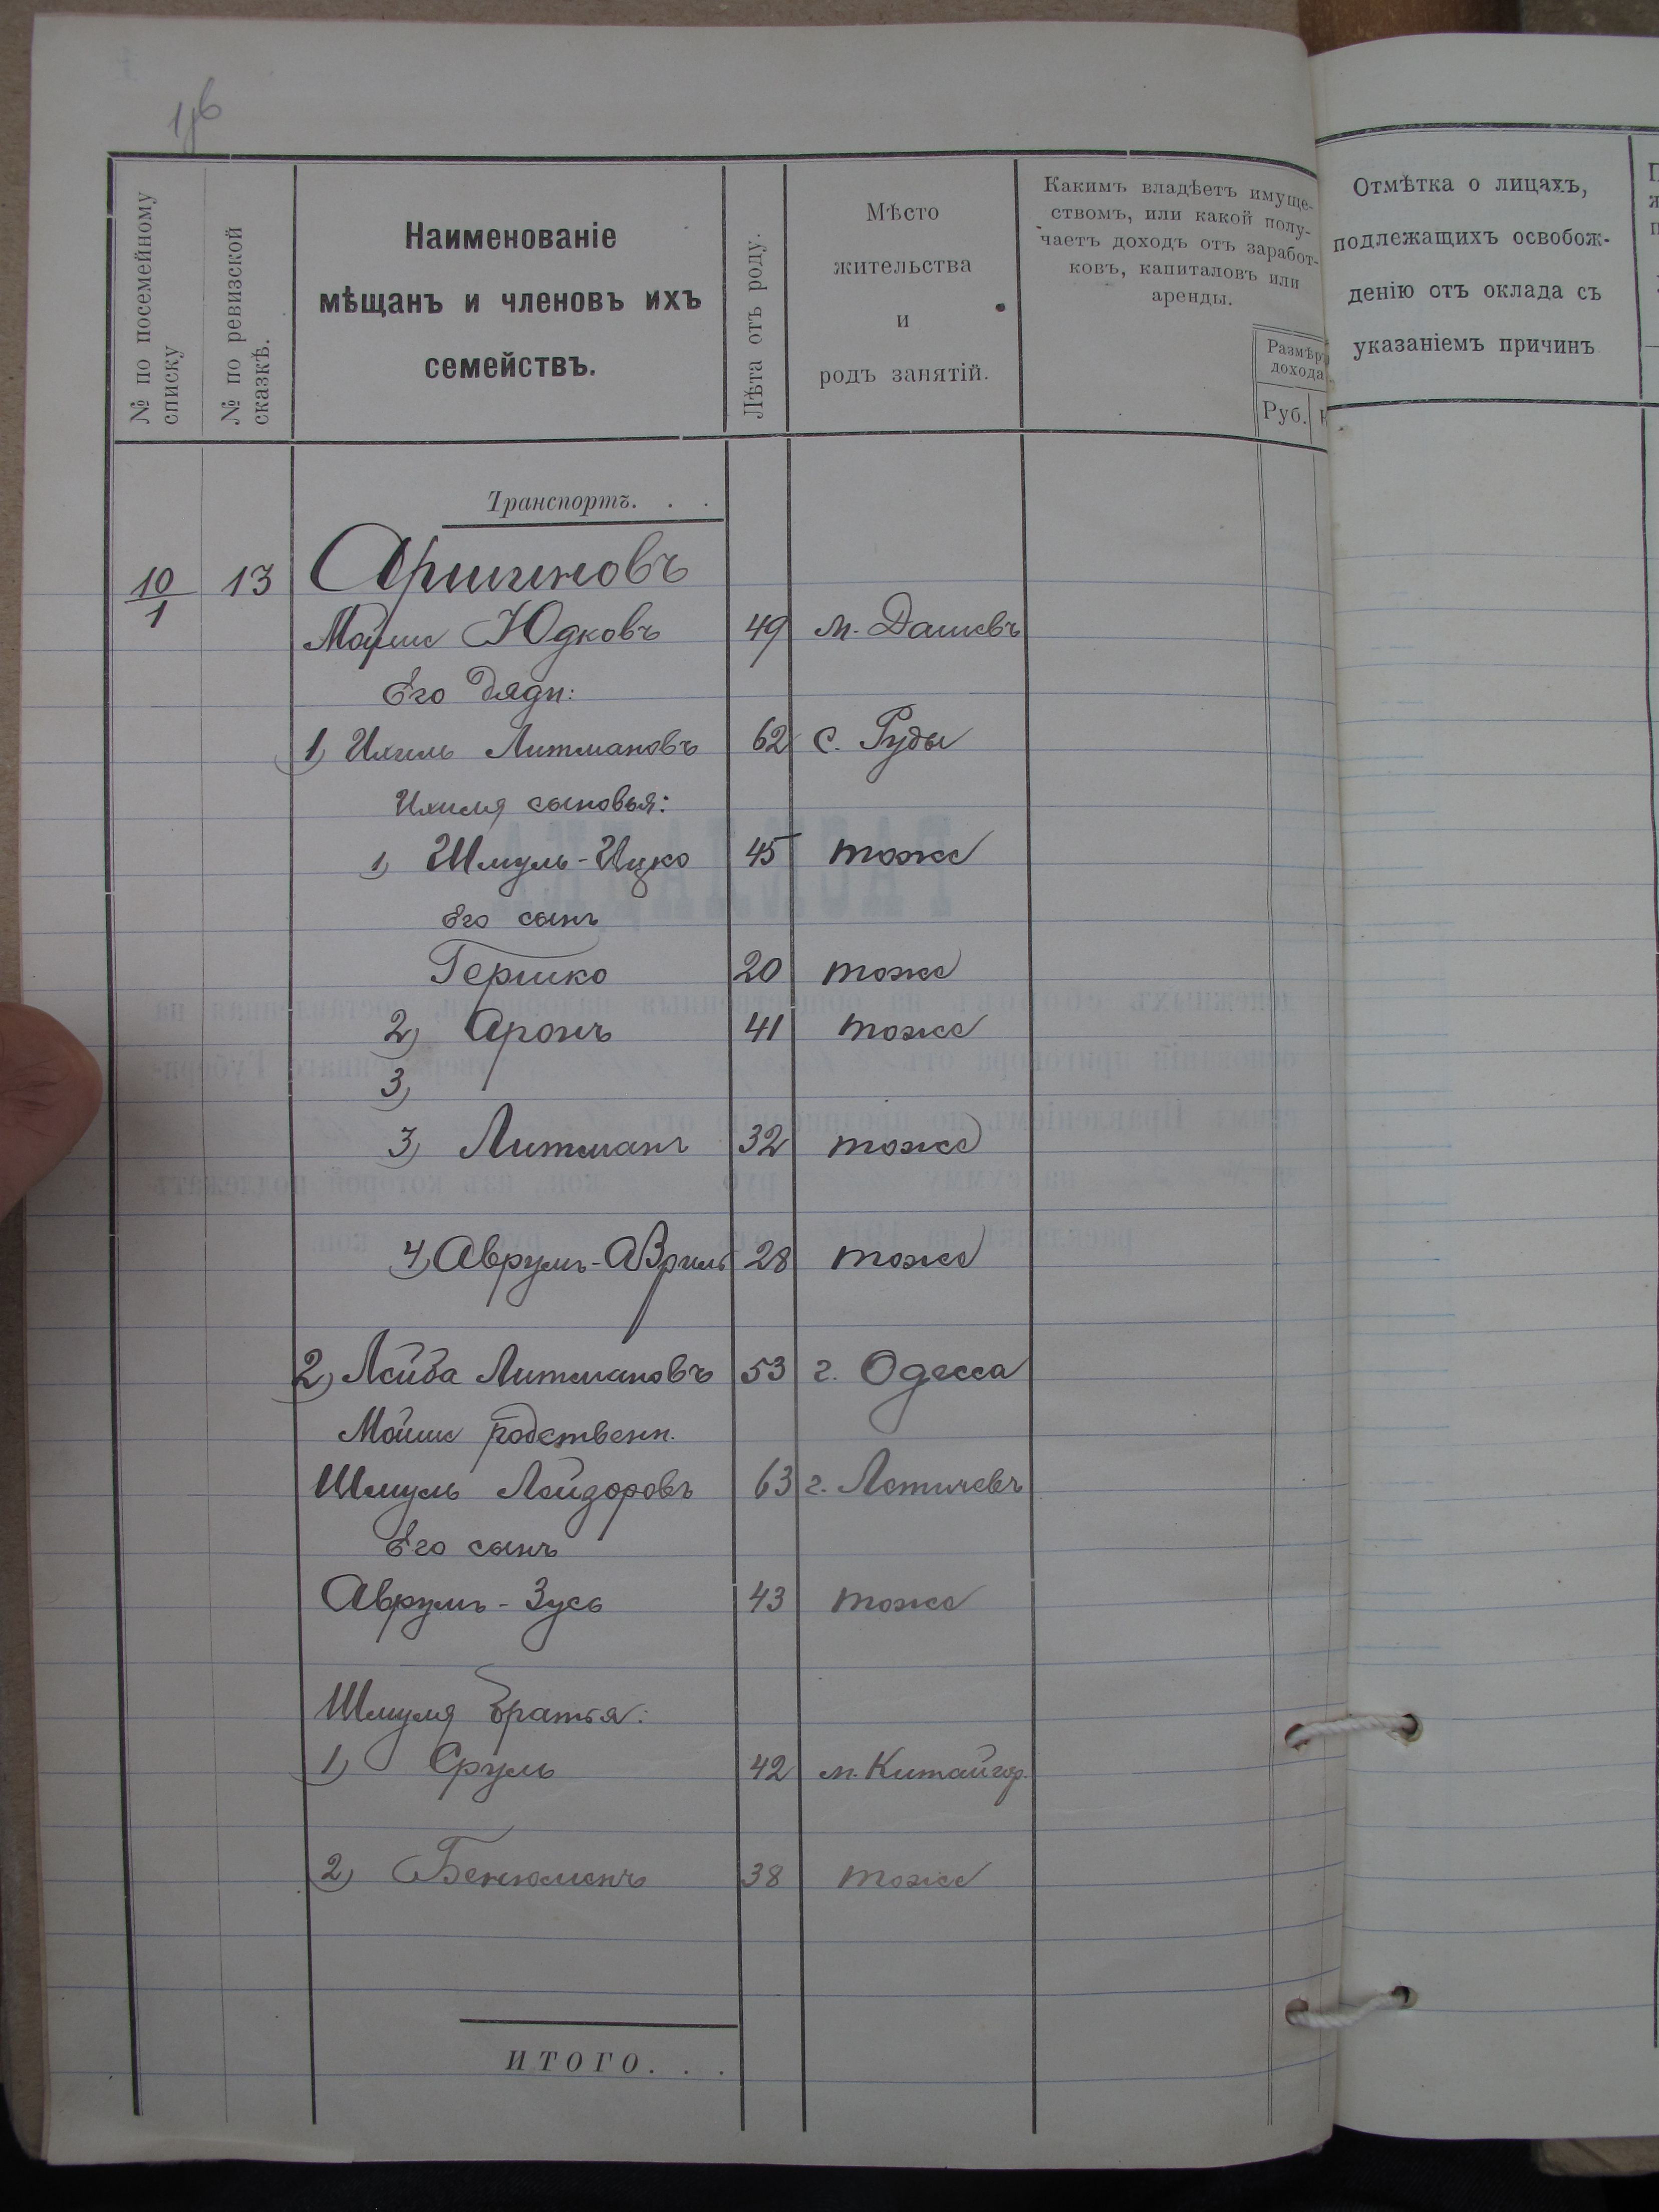 № по посемейному списку
№ по ревизской сказкѣ.
Наименованіе
мѣщанъ и членовъ ихъ
семействъ.
Лѣта отъ роду.
Мѣсто
жительства
и
родъ занятій.
Какимъ владѣетъ имуще-
ствомъ, или какой полу-
чаетъ доходъ отъ заработ-
ковъ, капиталовъ или
аренды.
Размѣръ
дохода
Руб.
Отмѣтка о лицахъ,
подлежащихъ освобож-
денію отъ оклада съ
указаніемъ причинъ
Транспортъ. . .
10/1 13 Аршиновъ
Мошко Юдковъ 49 м. Дашевъ
Его дяди:
1) Ихиль Литмановъ 62 с. Руды
Ихиля сыновья:
1) Шмуль-Ицко 45 тоже
Его сынъ
Гершко 20 тоже
2) Аронъ 41 тоже
3)
3) Литманъ 32 тоже
4) Аврумъ- 28 тоже
2) Лейба Литмановъ 53 г. Одесса
родственн.
Шмуль Лейзоровъ 63 г. Летичевъ
Его сынъ
Аврумъ-Зусь 43 тоже
Шмуля братья:
1) Сруль 42 м. Китайгор.
2) Бенюменъ 38 тоже
ИТОГО. . .